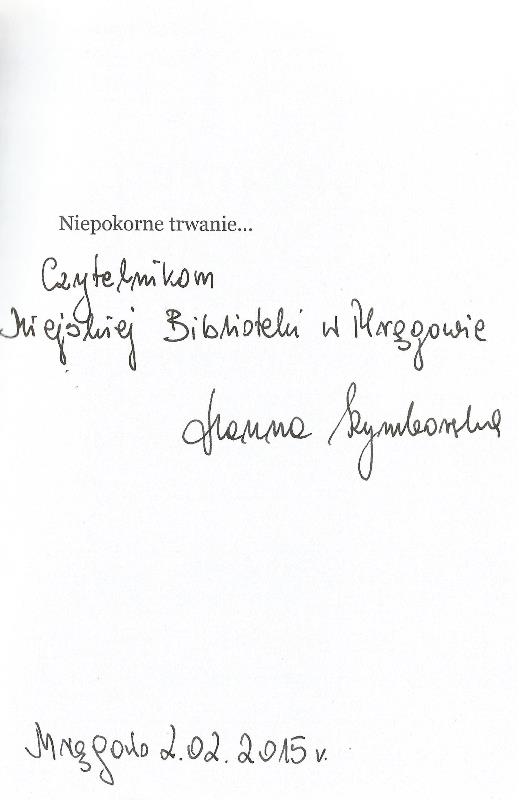 Niepokorne trwanie...
Czytelnikom
Miejskiej Biblioteki w Mrągowie
Hanna Szymborska
Mrągowo 2.02.2015 r.